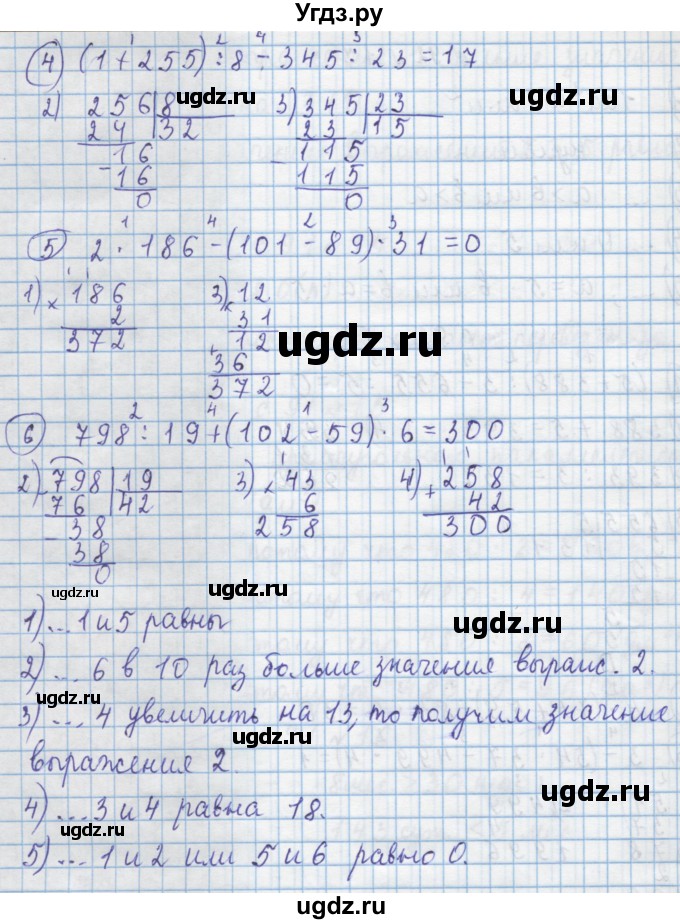 Угдз.ру
4) (1 + 255) : 8 - 345 : 23 = 17
1 2 4 3
2) 256 | 8
24 | 32
- 16
16
0
3) 345 | 23
23 | 15
- 115
115
0
ugdz.ru
ugdz.ru
5) 2 · 186 - (101 - 89) · 31 = 0
1 4 2 3
1) × 186
2
372
3) × 12
31
+ 12
36
372
ugdz.ru
6) 798 : 19 + (102 - 59) · 6 = 300
2 4 1 3
2) - 798 | 19
76 | 42
- 38
38
0
3) × 43
6
258
4) + 258
42
300
ugdz.ru
ugdz.ru
ugdz.ru
1) ... 1 и 5 равны
2) ... 6 в 10 раз больше значения выраж. 2.
3) ... 4 увеличить на 13, то получим значение
выражения 2.
4) ... 3 и 4 равна 18.
5) ... 1 и 2 или 5 и 6 равно 0.
ugdz.ru
ugdz.ru
ugdz.ru
ugdz.ru